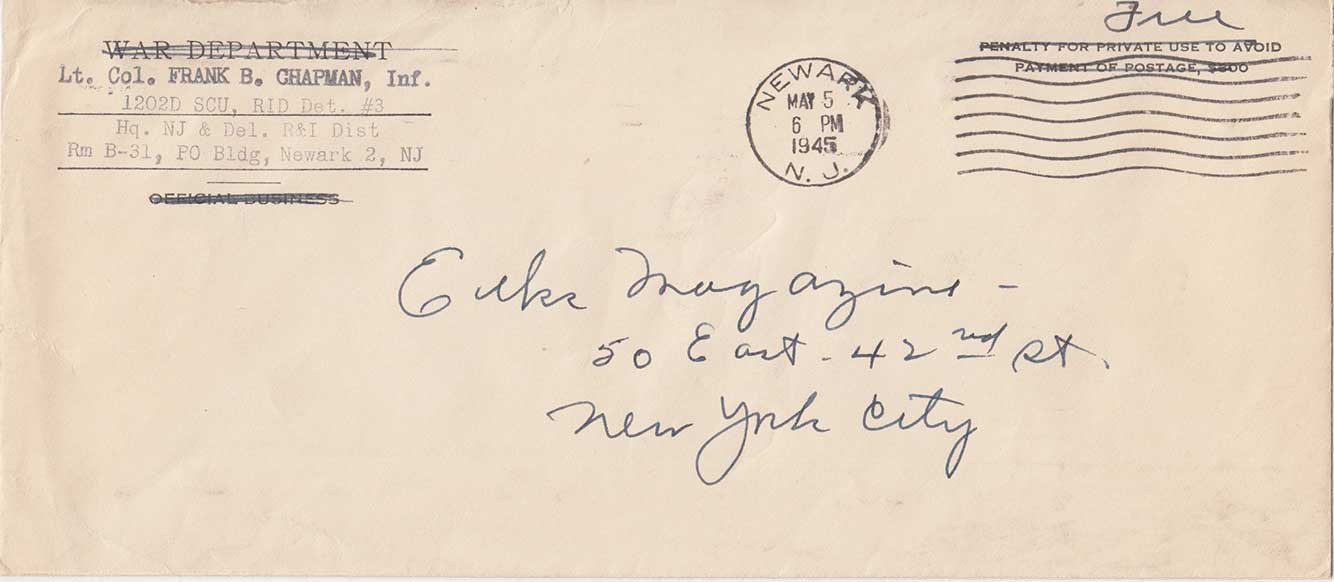 WAR DEPARTMENT
Lt. Col. FRANK B. CHAPMAN, Inf.
1202D SCU, RID Det. #3
Hq. NJ & Del. R&I Dist
Rm B-31, PO Bldg, Newark 2, NJ
OFFICIAL BUSINESS
NEWARK
MAY 5
6 PM
1945
N. J.
Free
PENALTY FOR PRIVATE USE TO AVOID
PAYMENT OF POSTAGE, $300
Elks Magazine -
50 East - 42nd St.
New York City